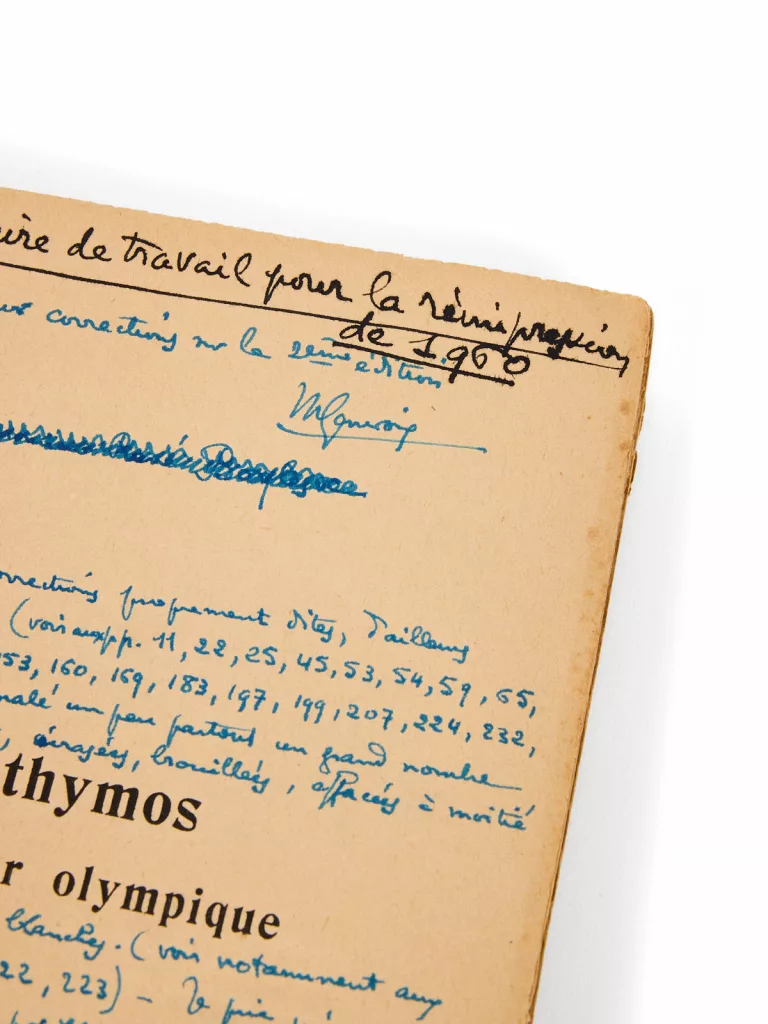 ire de travail pour la réimpression
de 1960
corrections sur la 2ème édition
MGenevoix
corrections proprement dites, d'ailleurs
(voir aux pp. 11, 22, 25, 45, 53, 54, 59, 65,
153, 160, 169, 183, 197, 199, 207, 224, 232,
un peu partout un grand nombre
écrasées, brouillées, effacées à moitié
thymos
r olympique
blanches. (voir notamment aux
22, 223) – Je prie